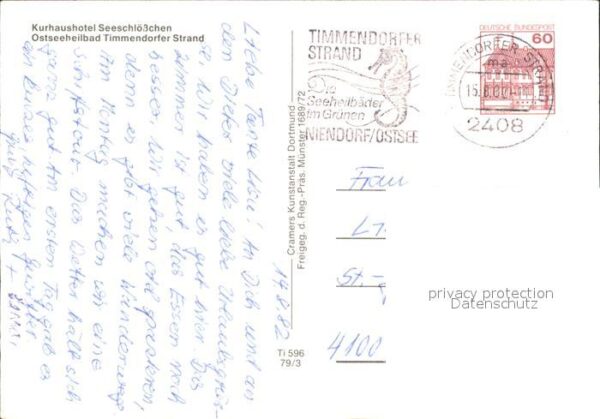 Kurhaushotel Seeschlößchen
Ostseeheilbad Timmendorfer Strand
14.6.82
Liebe Tante Lisa! An Dich und an
den Dieter viele liebe Urlaubsgrüs-
se. Wir haben es gut hier. Das
Zimmer ist gut, das Essen noch
besser. Wir gehen viel spazieren,
denn es gibt viele Wanderwege.
Am Montag machen wir eine
Schiffstour. Das Wetter hält sich
ganz gut. Am ersten Tag gab es
ein kurzes heftiges Gewitter.
Cramers Kunstanstalt Dortmund
Freigeg. d. Reg.-Präs. Münster 1689/72
Ti 596
79/3
TIMMENDORFER
STRAND
Die
Seeheilbäder
im Grünen
NIENDORF/OSTSEE
DEUTSCHE BUNDESPOST
60
TIMMENDORFER STRAND
ma
2408
Frau
St.-
4100
privacy protection
Datenschutz